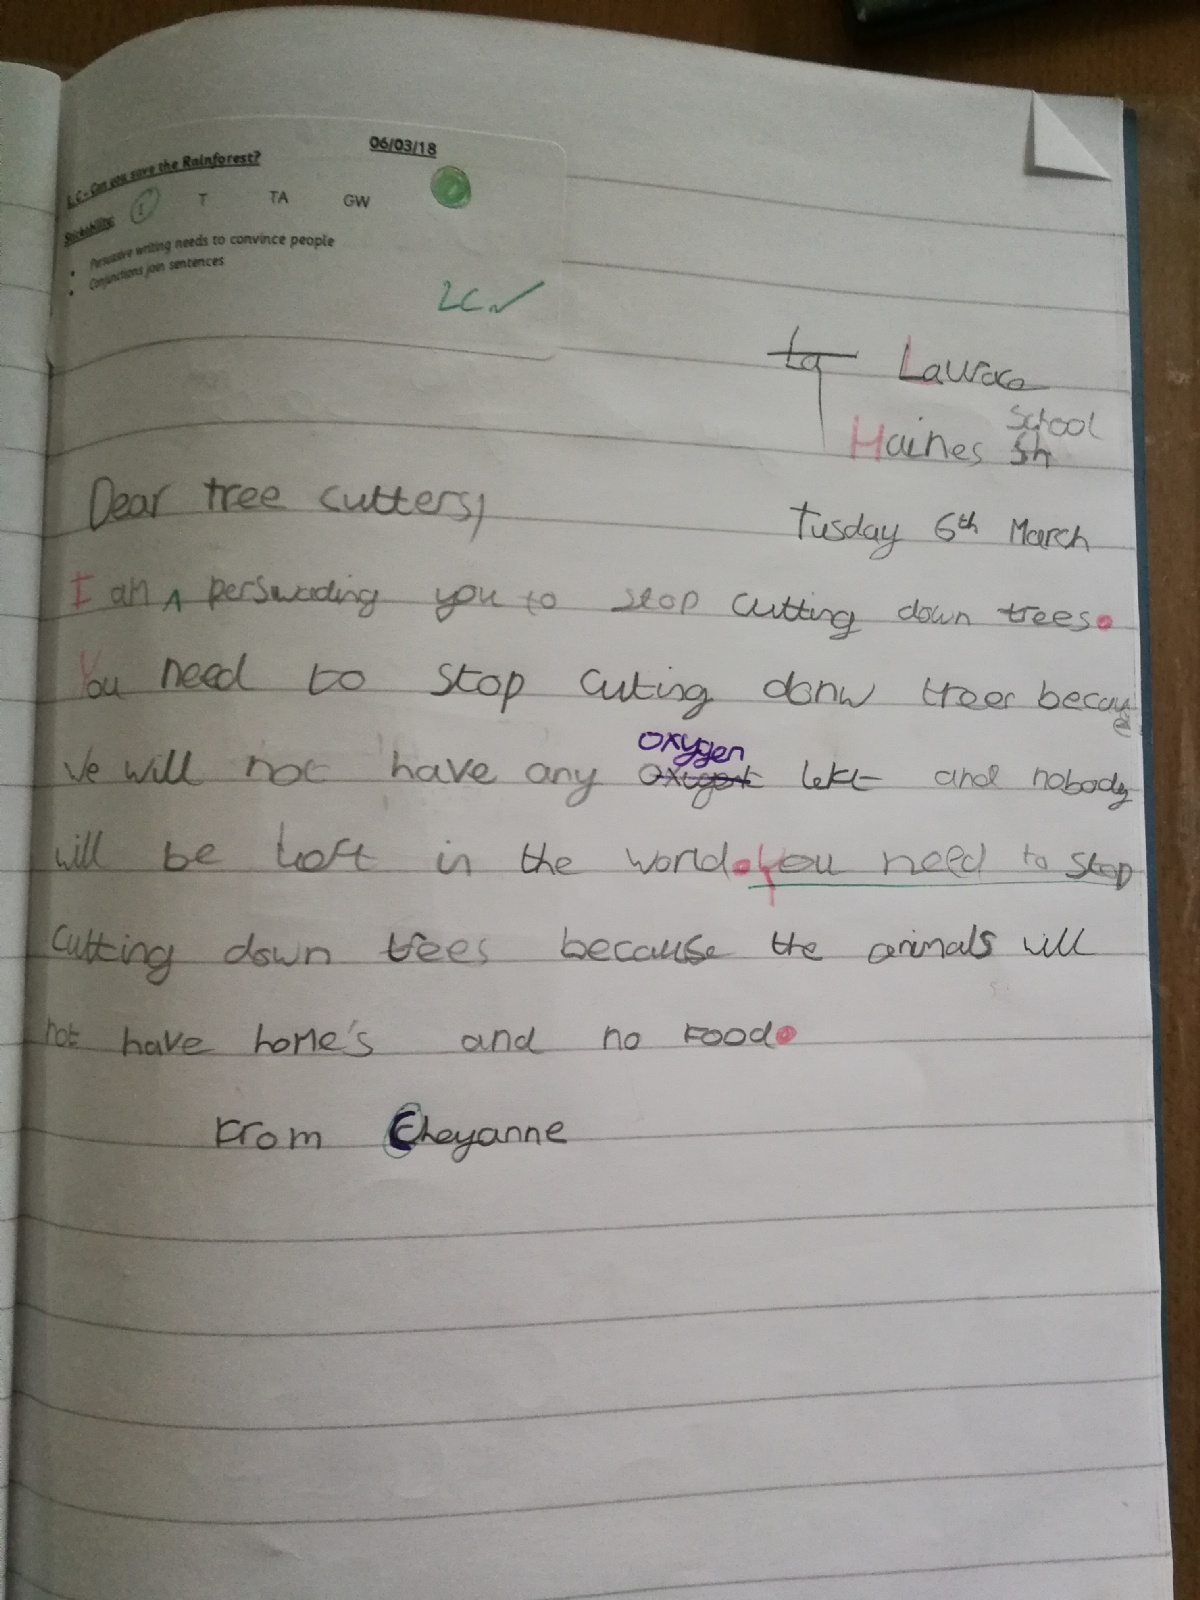 06/03/18
L.C - Can you save the Rainforest?
Stickability: I T TA GW
• Persuasive writing needs to convince people
• Conjunctions join sentences
LC ✓
Haines School
Dear tree cutters,
Tusday 6th March
I am persuading you to stop cutting down trees.
You need to stop cuting donw trees becaus
we will not have any oxygen left and nobody
will be left in the world. You need to stop
cutting down trees because the animals will
not have home's and no food.
From Cheyanne